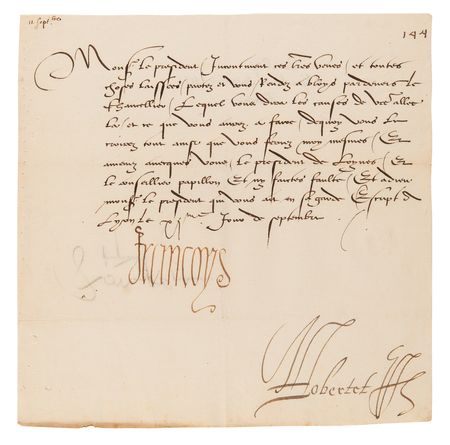 11 Septbre
144
Monsr le president Incontinent ces lrēs veues / et toutes
choses laissees / partez et vous Rendez a bloys par devers le
chancellier / Lequel vous dira les causes de vrē allee
la / et ce que vous aurez a faire / dequoy vous le
croirez tout ainsi que vous feriez moy mesmes / Et
amenez avecques vous / le president de Loynes / Et
le conseillier papillon Et ny faictes faulte / Et adieu
monsr le president qui vous ait en sa garde Escript a
Lyon le xjme Jour de septembre
Francoys
Robertet